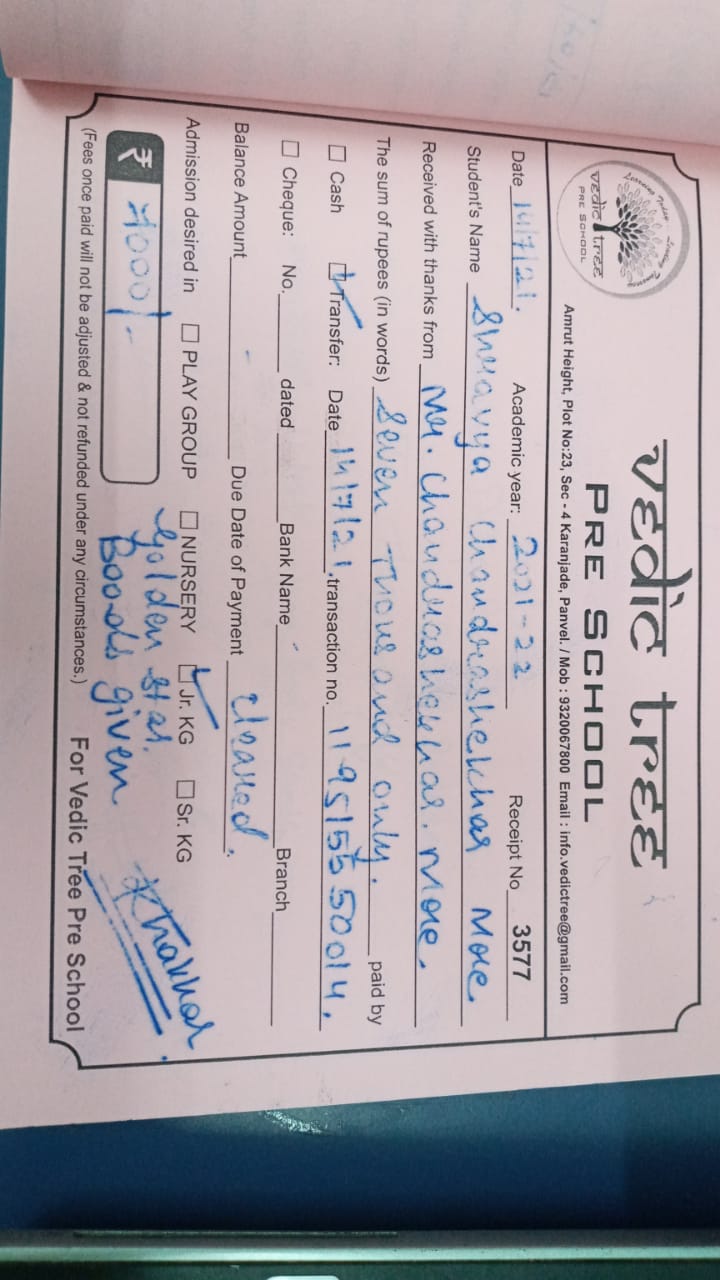 Learning Today Leading Tomorrow
vedic tree
PRE SCHOOL
vedic tree
PRE SCHOOL
Amrut Height, Plot No:23, Sec - 4 Karanjade, Panvel. / Mob : 9320067800 Email : info.vedictree@gmail.com
Date 14/7/21. Academic year: 2021-22 Receipt No 3577
Student's Name Shravya Chandrashekhar More
Received with thanks from Mr. Chandrashekhar. More.
The sum of rupees (in words) Seven Thousand only. paid by
☐ Cash ☑ Transfer: Date 14/7/21, transaction no. 119515550014.
☐ Cheque: No. dated Bank Name - Branch
Balance Amount - Due Date of Payment Cleared.
Admission desired in ☐ PLAY GROUP ☐ NURSERY ☑ Jr. KG ☐ Sr. KG
₹ 7000/- Golden star.
Books given
(Fees once paid will not be adjusted & not refunded under any circumstances.) For Vedic Tree Pre School